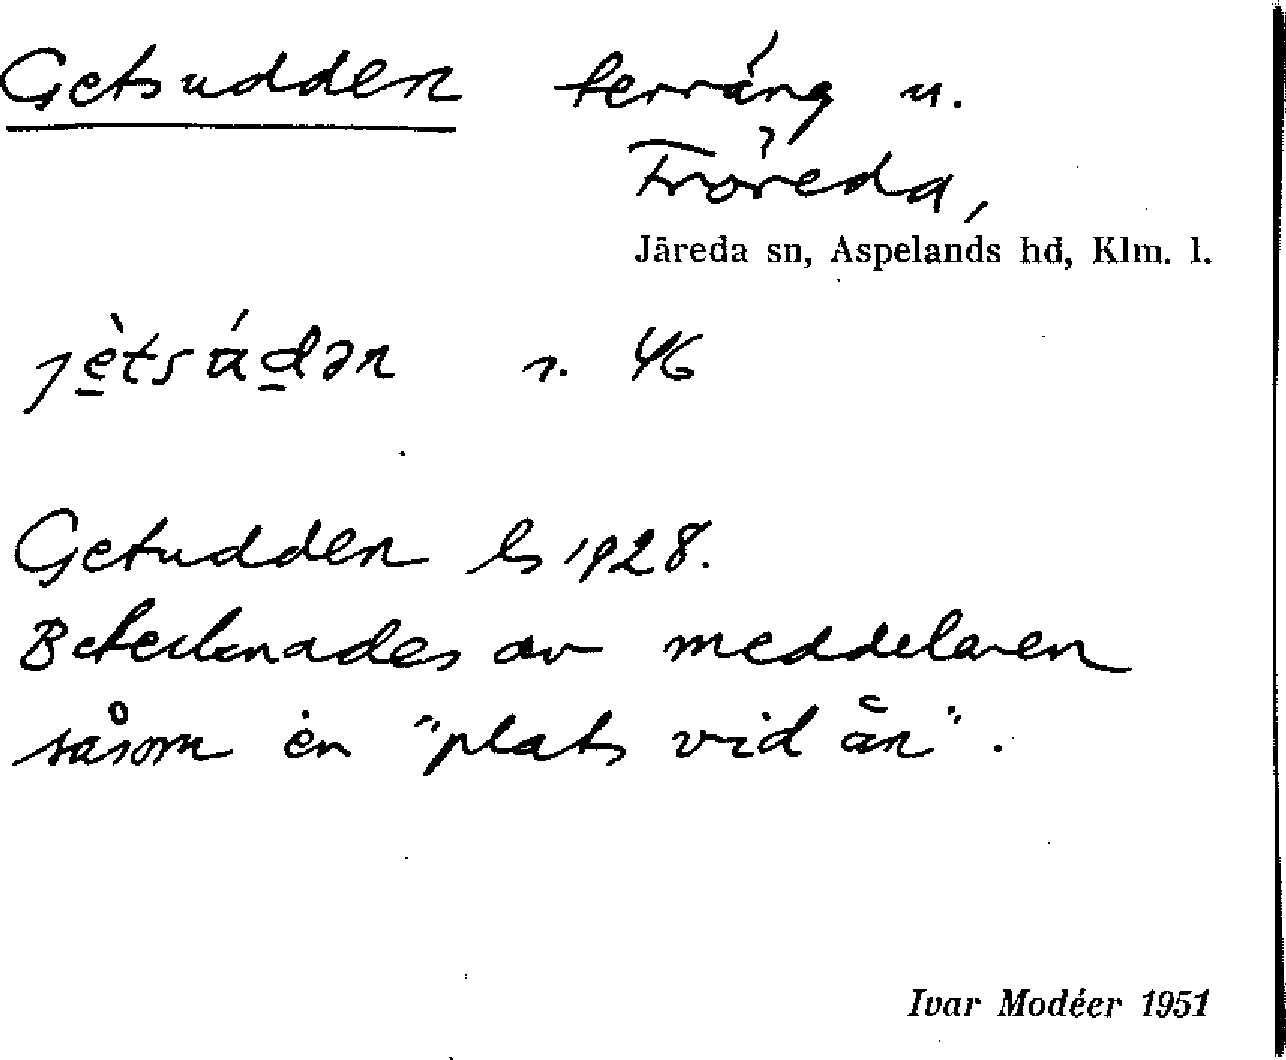 Getsudden terräng u.
Fröreda,
Järeda sn, Aspelands hd, Klm. l.
jètsúdən r. 46
Getudden ls 1928.
Betecknades av meddelaren
såsom en "plats vid ån".
Ivar Modéer 1951